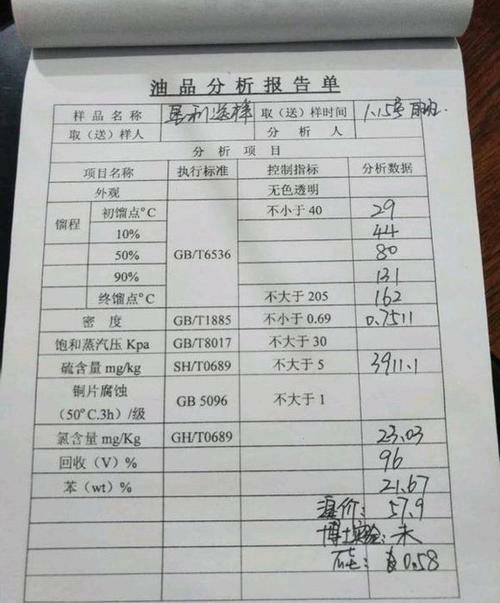 油品分析报告单
样品名称 垦利送样 取（送）样时间 1.15号
取（送）样人 分析人
分析项目
项目名称 执行标准 控制指标 分析数据
外观 无色透明
馏程 初馏点°C GB/T6536 不小于40 29
10% 44
50% 80
90% 131
终馏点°C 不大于205 162
密度 GB/T1885 不小于0.69 0.7511
饱和蒸汽压 Kpa GB/T8017 不大于30
硫含量 mg/kg SH/T0689 不大于5 3911.1
铜片腐蚀 (50°C.3h)/级 GB 5096 不大于1
氯含量 mg/Kg GH/T0689 23.03
回收（V）% 96
苯（wt）% 21.67
溴价： 57.9
博士实验： 未
0.58